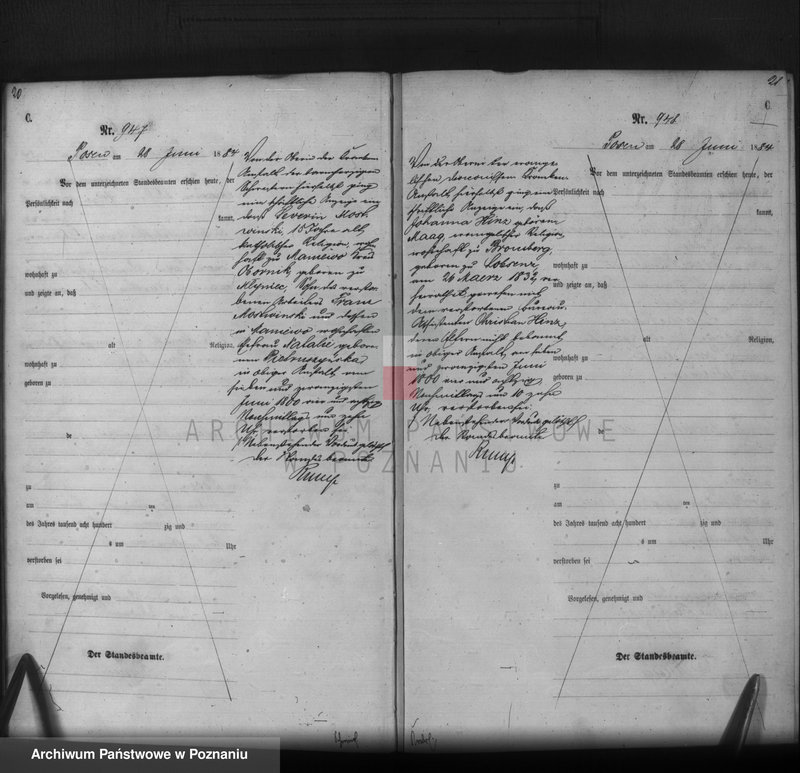 20
C.
Nr. 947
Posen am 28 Juni 1884
Vor dem unterzeichneten Standesbeamten erschien heute, der
Persönlichkeit nach
kannt,
wohnhaft zu
und zeigte an, daß
alt
Religion,
wohnhaft zu
geboren zu
de
zu
am
ten
des Jahres tausend acht hundert zig und
s um Uhr
verstorben sei
Vorgelesen, genehmigt und
Der Standesbeamte.
Von der Oberin der Kranken
Anstalt der barmherzigen
Schwestern hierselbst ging
eine schriftliche Anzeige ein,
daß Severin Most
winski, 15 Jahre alt,
katholischer Religion, wohn
haft zu Maniewo Kreis
Obornik, geboren zu
Sohn des verstor
benen Arbeiters Franz
Mostwinski und dessen
in Maniewo wohnhaften
Ehefrau Natalie gebore
nen
in obiger Anstalt am
sieben und zwanzigsten
Juni 1800 vier und achtzig
Nachmittags um zehn
Uhr verstorben sei
Nebenstehender Vordruck gelöscht
Der Standesbeamte
21
C.
Nr. 948
Posen am 28 Juni 1884
Vor dem unterzeichneten Standesbeamten erschien heute, der
Persönlichkeit nach
kannt,
wohnhaft zu
und zeigte an, daß
alt
Religion,
wohnhaft zu
geboren zu
de
zu
am
ten
des Jahres tausend acht hundert zig und
s um Uhr
verstorben sei
Vorgelesen, genehmigt und
Der Standesbeamte.
Von der Oberin der evange
lischen Kranken
Anstalt hierselbst ging eine
schriftliche Anzeige ein, daß
Johanna Hinz geborene
Maag evangelischer Religion,
wohnhaft zu Bromberg,
geboren zu Lobsenz,
am 26 Maerz 1832 ver
heirathet gewesen mit
dem verstorbenen Bureau
Assistenten Christian Hinz,
deren Eltern nicht bekannt
in obiger Anstalt, am sieben
und zwanzigsten Juni
1800 vier und achtzig
Nachmittags um 10 zehn
Uhr, verstorben sei
Nebenstehender Vordruck gelöscht
Der Standesbeamte
ARCHIWUM PAŃSTWOWE
W POZNANIU
Archiwum Państwowe w Poznaniu